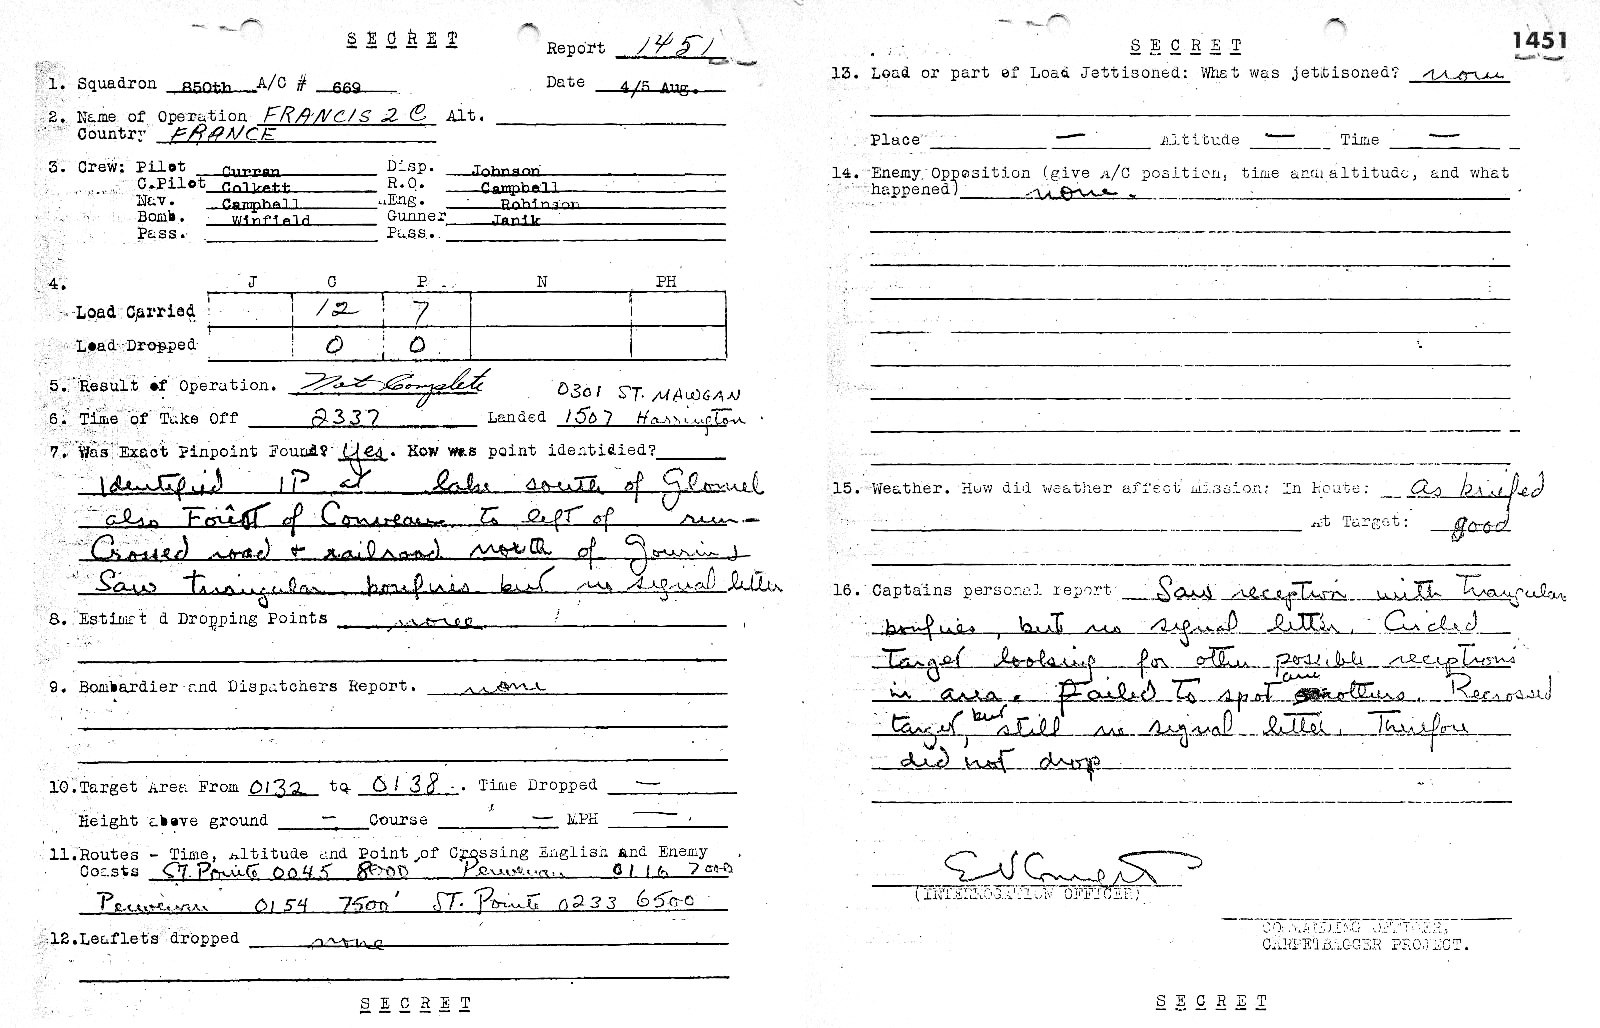 SECRET
Report 1451
1. Squadron 850th A/C # 669 Date 4/5 Aug.
2. Name of Operation FRANCIS 2 C Alt.
Country FRANCE
3. Crew: Pilot Curran Disp. Johnson
C.Pilot Colkett R.O. Campbell
Nav. Campbell Eng. Robinson
Bomb. Winfield Gunner Janik
Pass. Pass.
4. J C P N PH
Load Carried 12 7
Load Dropped 0 0
5. Result of Operation. Not Complete 0301 ST. MAWGAN
6. Time of Take Off 2337 Landed 1507 Harrington
7. Was Exact Pinpoint Found? Yes. How was point identidied?
Identified IP at lake south of Glomel
also Forêst of Conveau to left of run -
Crossed road & railroad north of Gourin &
Saw triangular bonfires but no signal letter
8. Estimat d Dropping Points none
9. Bombardier and Dispatchers Report. none
10. Target Area From 0132 to 0138. Time Dropped —
Height above ground — Course — MPH —
11. Routes - Time, Altitude and Point of Crossing English and Enemy
Coasts ST. Pointe 0045 8000 0116 7000
0154 7500' ST. Pointe 0233 6500
12. Leaflets dropped none
SECRET
SECRET
1451
13. Load or part of Load Jettisoned: What was jettisoned? none
Place — Altitude — Time —
14. Enemy Opposition (give A/C position, time and altitude, and what
happened) none.
15. Weather. How did weather affect mission: In Route: As briefed
At Target: good
16. Captains personal report: Saw reception with triangular
bonfires, but no signal letter. Circled
target looking for other possible receptions
in area. Failed to spot any others. Recrossed
target, but still no signal letter. Therefore
did not drop
(INTERROGATION OFFICER)
COMMANDING OFFICER,
CARPETBAGGER PROJECT.
SECRET